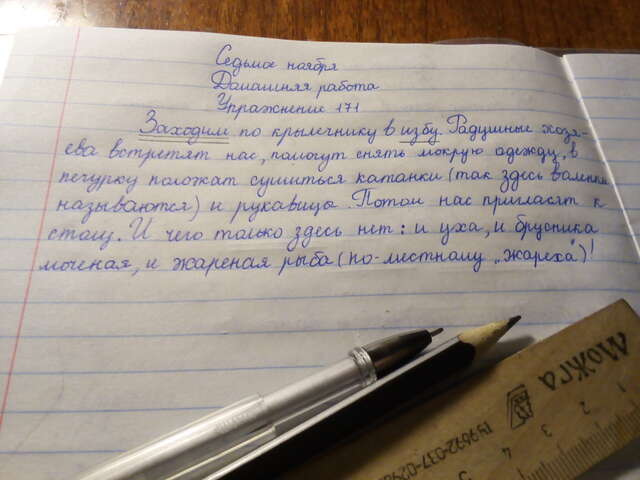 Седьмое ноября
Домашняя работа
Упражнение 171
Заходим по крылечнику в избу. Радушные хозя-
ева встретят нас, помогут снять мокрую одежду, в
печурку положат сушиться катанки (так здесь валенки
называются) и рукавицы. Потом нас пригласят к
столу. И чего только здесь нет: и уха, и брусника
моченая, и жареная рыба (по-местному „жареха“)!
МОЖГА
1 2 3 4 5